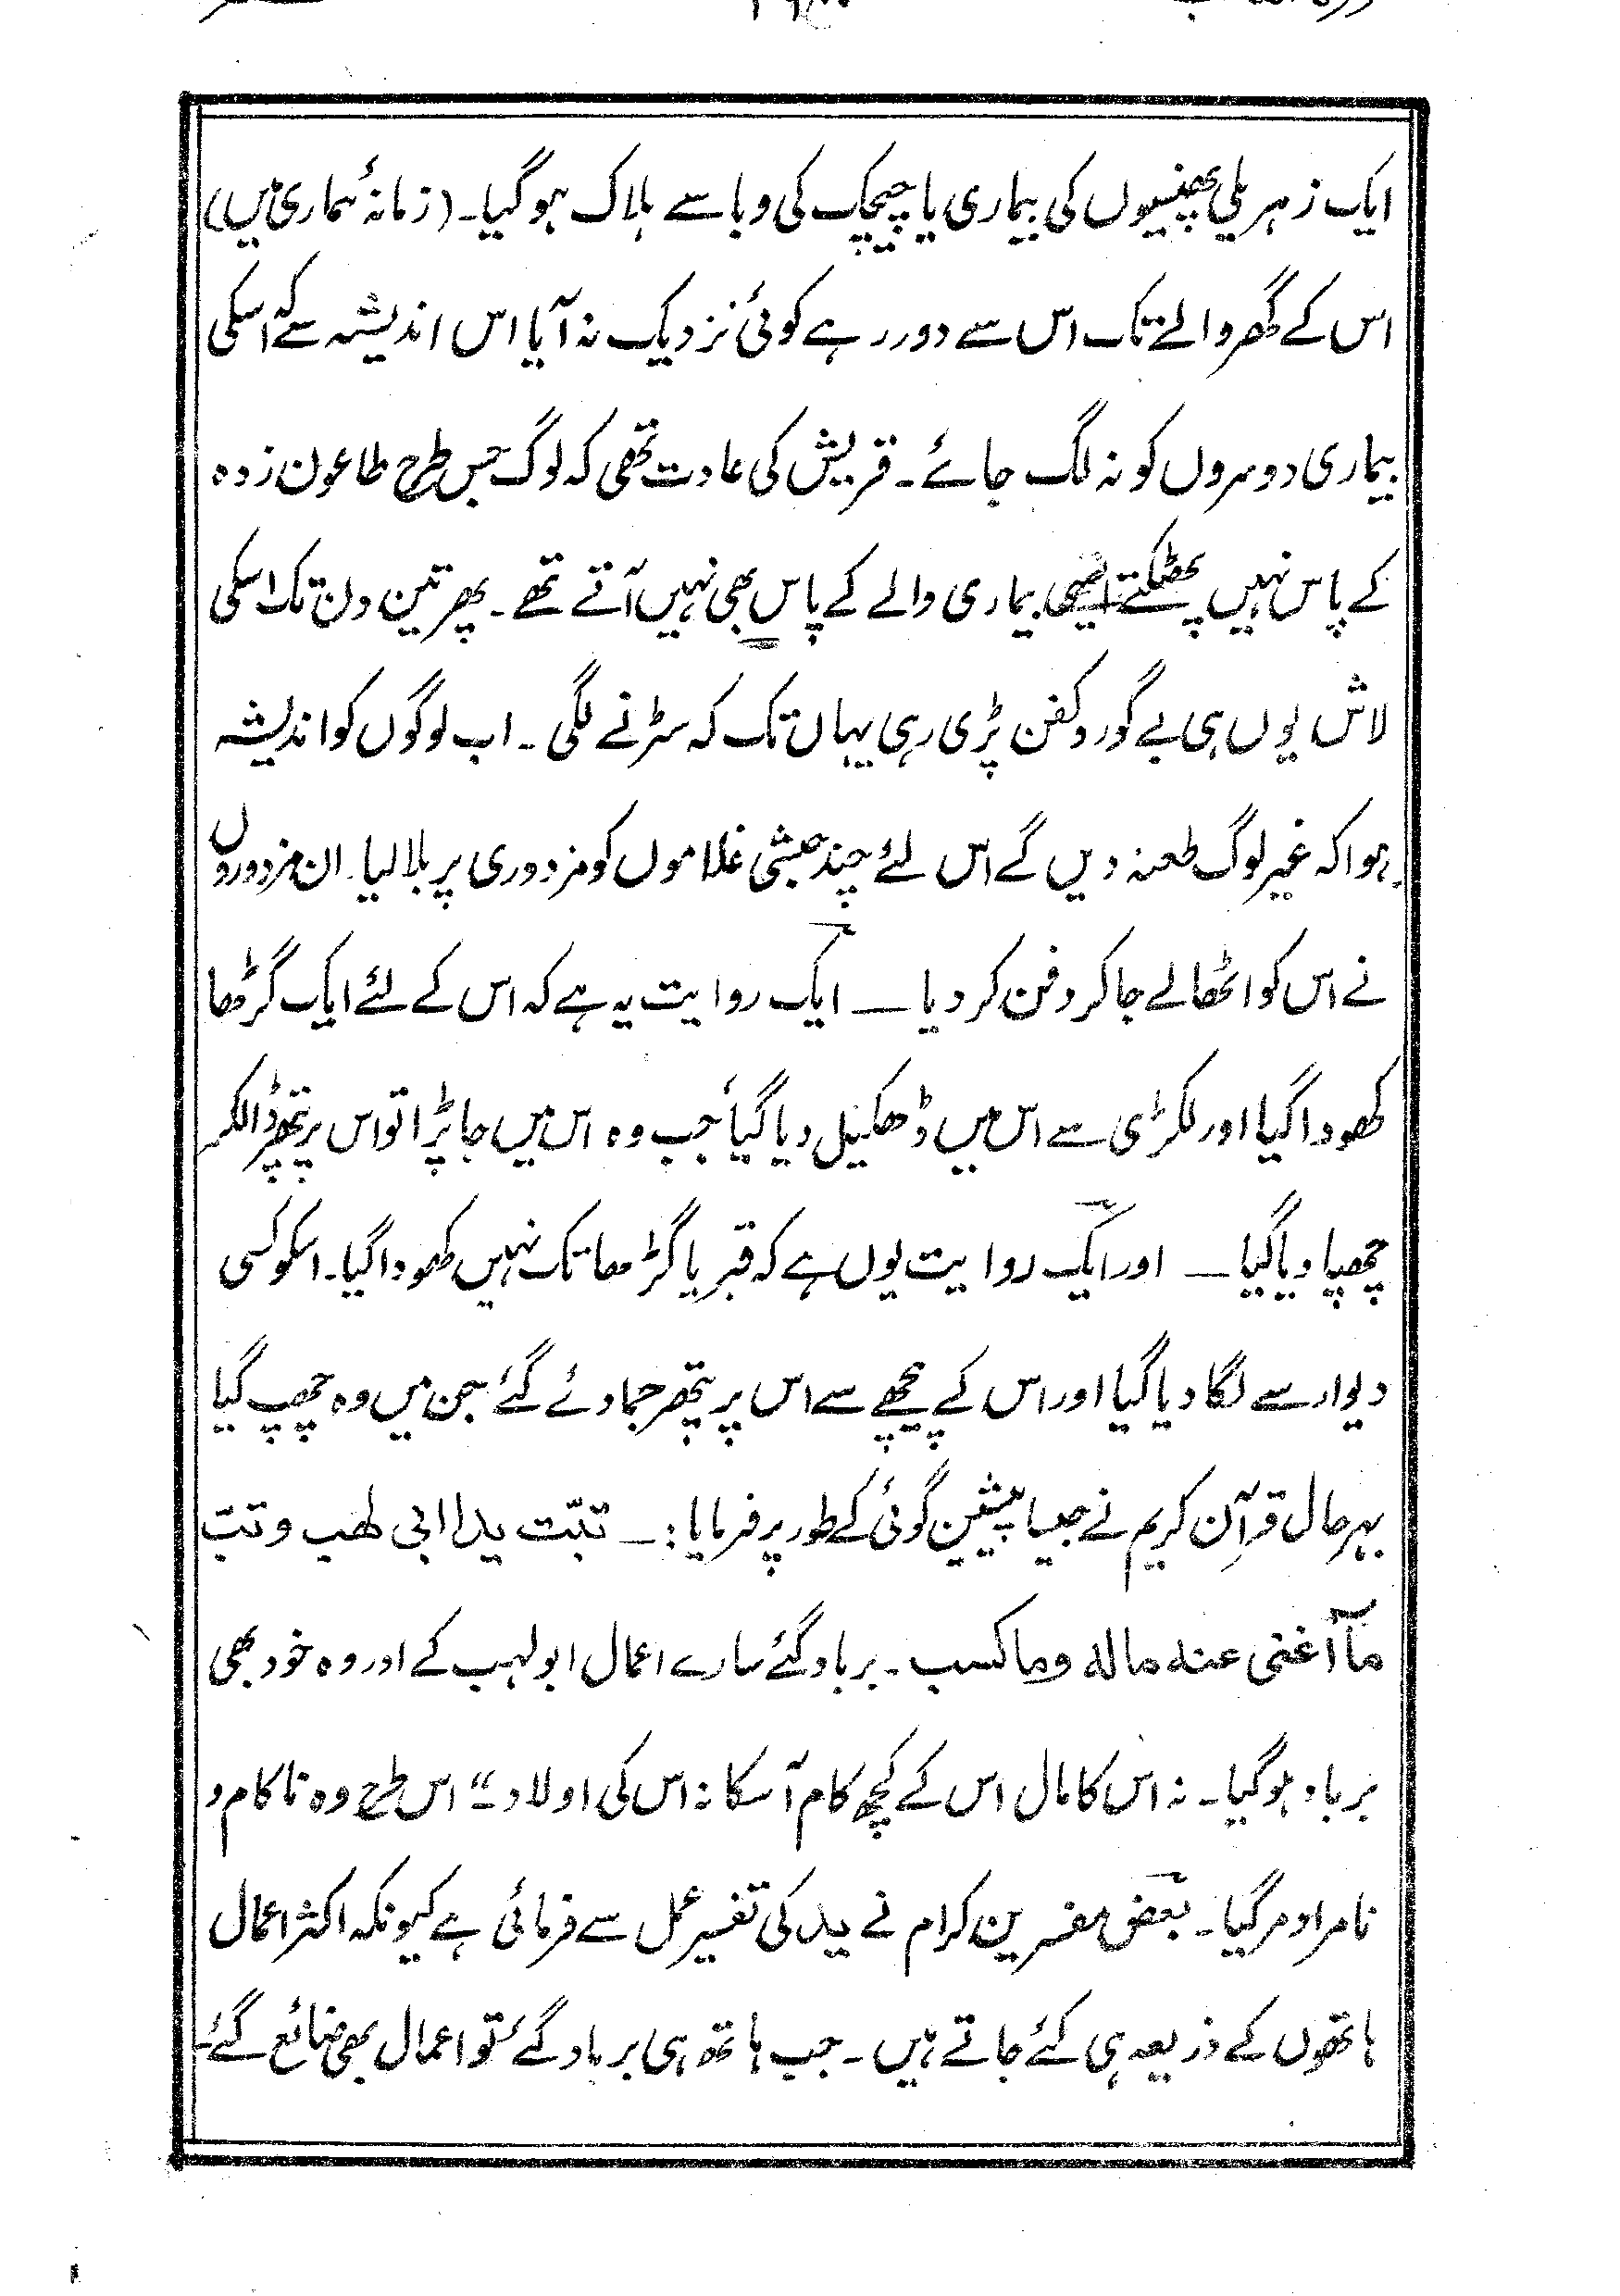 ایک زہریلی پھنسیوں کی بیماری یا چیچک کی وبا سے ہلاک ہوگیا۔ (زمانۂ بیماری میں)
اس کے گھر والے تک اس سے دور رہے کوئی نزدیک نہ آیا اس اندیشہ سے کہ اسکی
بیماری دوسروں کو نہ لگ جائے۔ قریش کی عادت تھی کہ لوگ جس طرح طاعون زدہ
کے پاس نہیں پھٹکتے ایسی بیماری والے کے پاس بھی نہیں آتے تھے۔ پھر تین دن تک اسکی
لاش یوں ہی بے گور و کفن پڑی رہی یہاں تک کہ سڑنے لگی۔ اب لوگوں کو اندیشہ
ہوا کہ غیر لوگ طعنہ دیں گے اس لئے چند حبشی غلاموں کو مزدوری پر بلالیا۔ ان مزدوروں
نے اس کو اٹھالے جاکر دفن کر دیا — ایک روایت یہ ہے کہ اس کے لئے ایک گڑھا
کھودا گیا اور لکڑی سے اس میں ڈھکیل دیا گیا جب وہ اس میں جاپڑا تو اس پر پتھر ڈالکر
چھپا دیا گیا — اور ایک روایت یوں ہے کہ قبر یا گڑھا تک نہیں کھودا گیا۔ اسکو کسی
دیوار سے لگا دیا گیا اور اس کے پیچھے سے اس پر پتھر جما دئے گئے جن میں وہ چھپ گیا
بہرحال قرآنِ کریم نے جیسا پیشین گوئی کے طور پر فرمایا :— تبّت یدا ابی لھب وتب
مآ اغنی عنه ماله وما کسب۔ برباد گئے سارے اعمال ابولہب کے اور وہ خود بھی
برباد ہوگیا۔ نہ اس کا مال اس کے کچھ کام آسکا نہ اس کی اولاد۔“ اس طرح وہ ناکام و
نامراد مرگیا۔ بعض مفسرین کرام نے ید کی تفسیر عمل سے فرمائی ہے کیونکہ اکثر اعمال
ہاتھوں کے ذریعہ ہی کئے جاتے ہیں۔ جب ہاتھ ہی برباد گئے تو اعمال بھی ضائع گئے۔